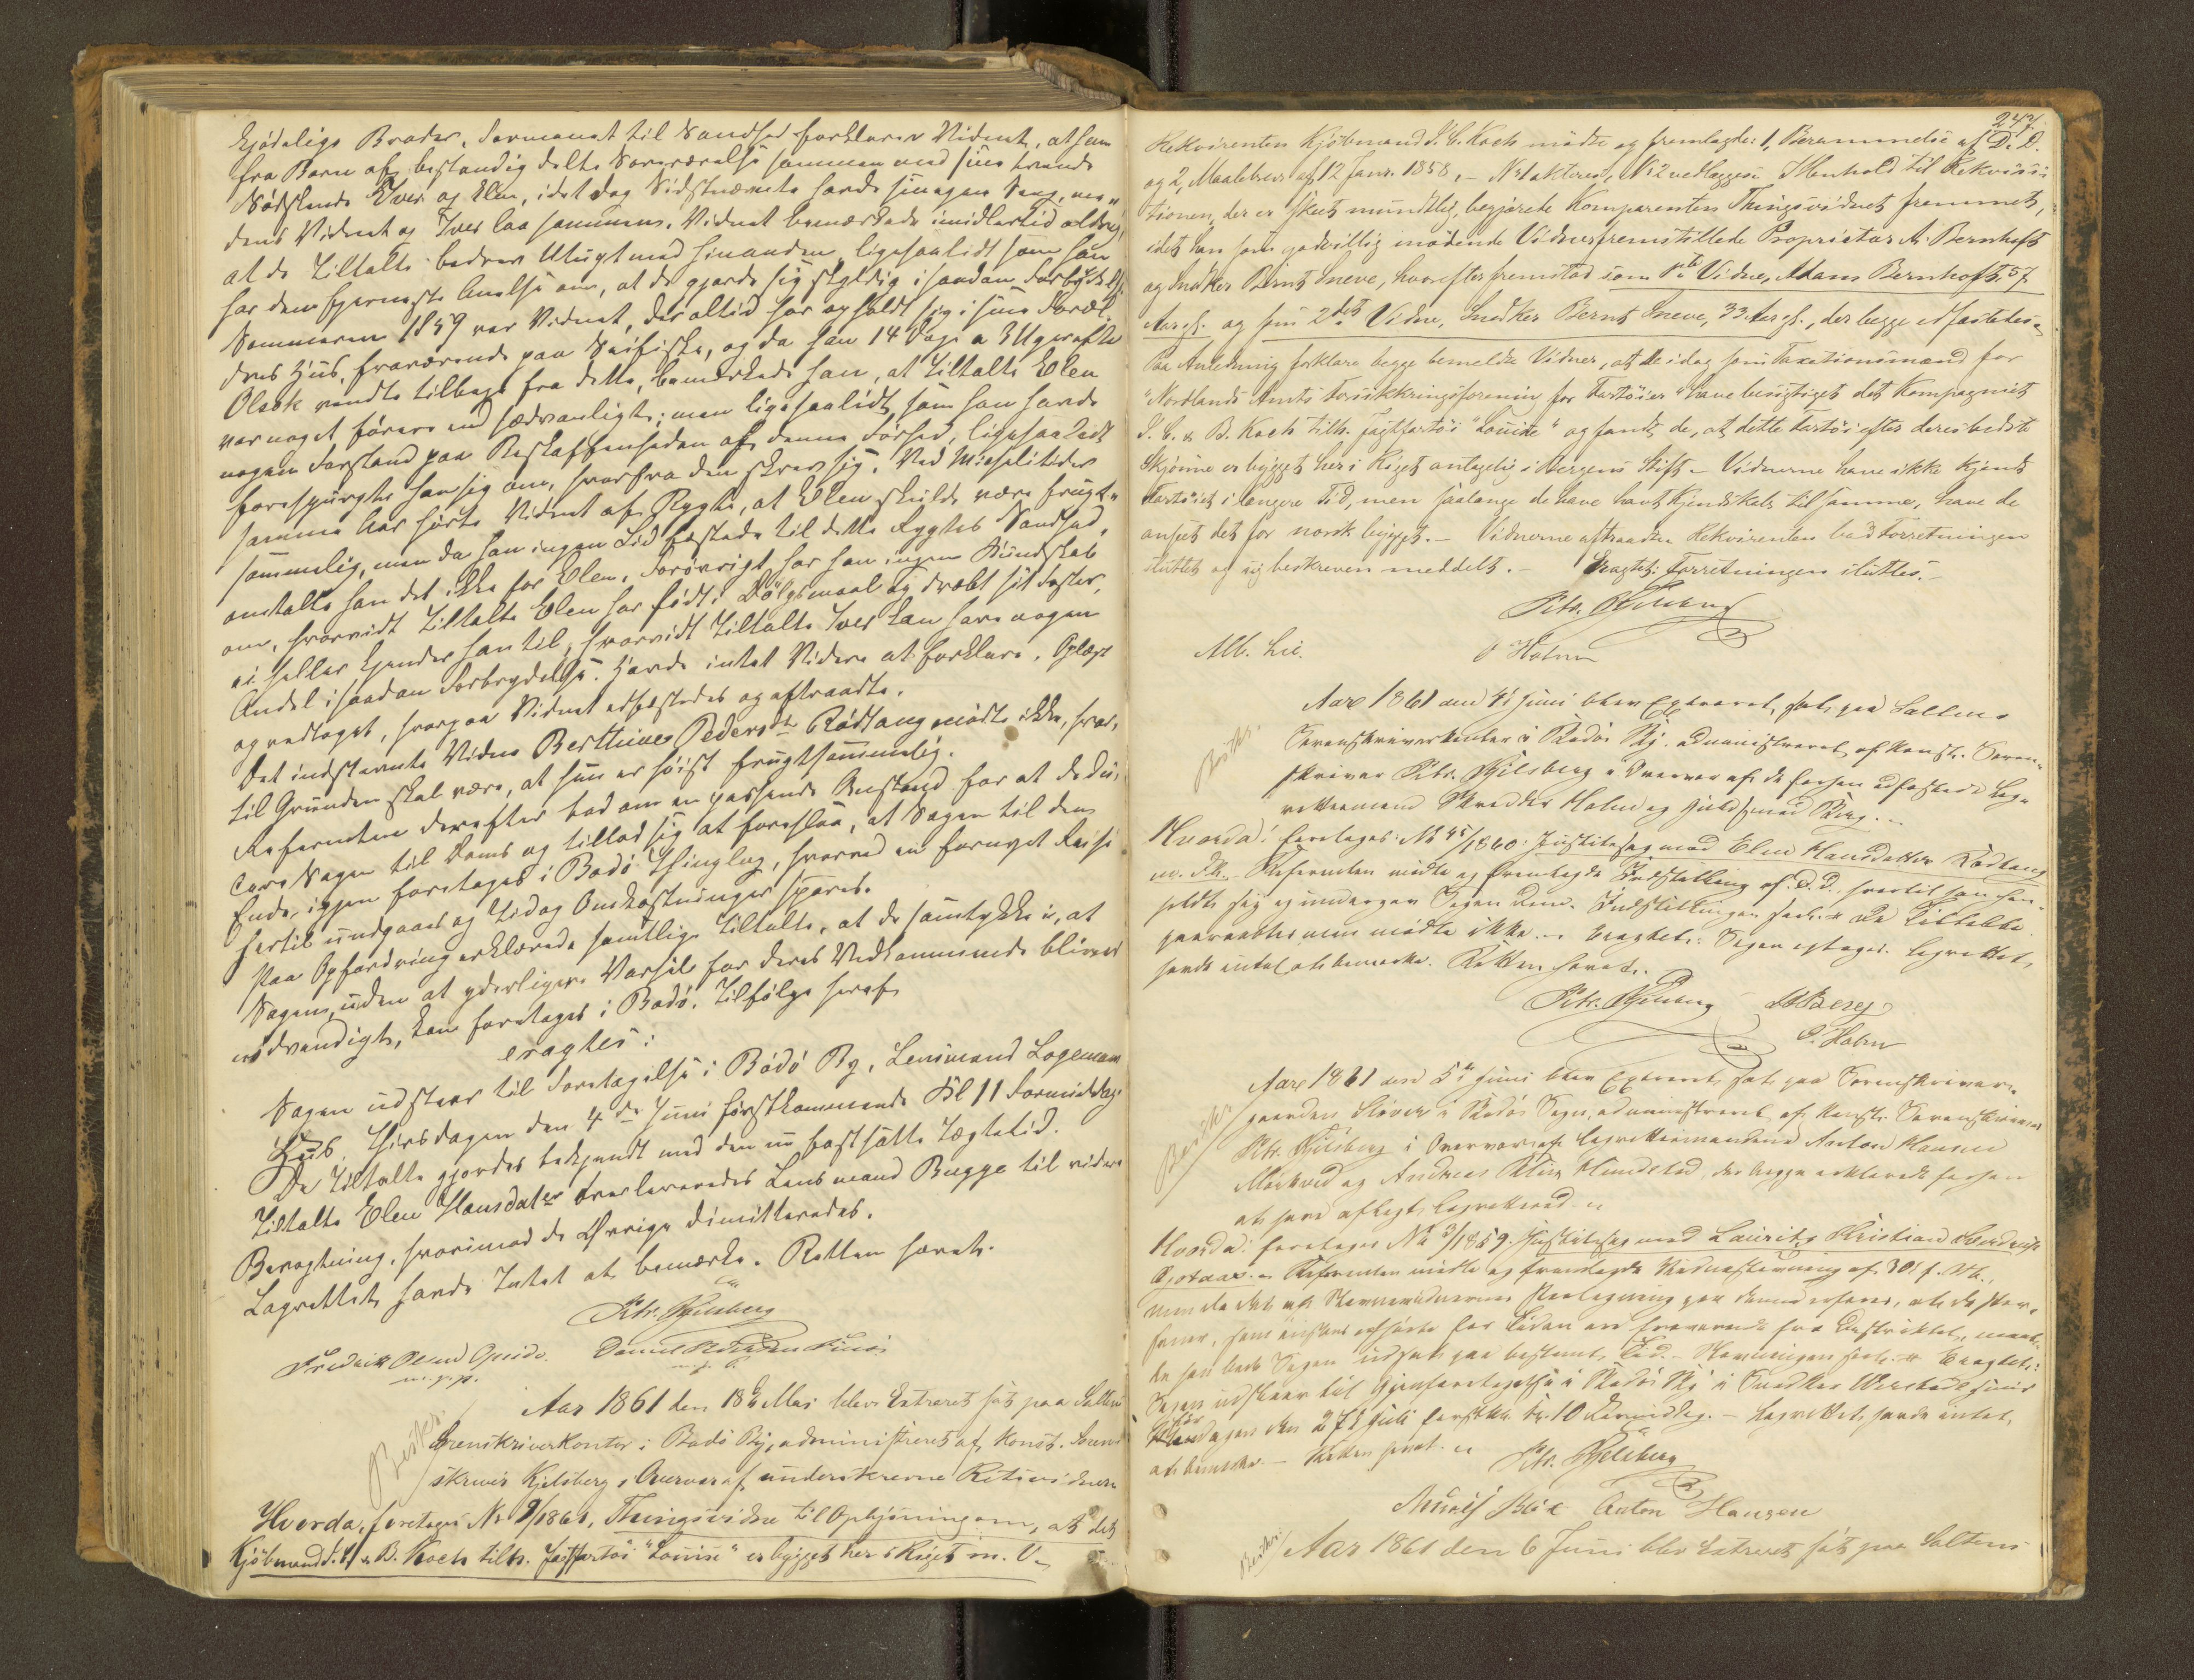 kjødelige Broder. Formanet til Sandhed forklarer Vidnet, at han
fra Barn af bestandig delte Soveværelse sammen med sine tvende
Sødskende Iver og Elen, idet dog Sidstnævnte havde sin egen Seng, me-
dens Vidnet og Iver laa sammen. Vidnet bemærkede imidlertid aldrig,
at de Tiltalte bedrev Utugt med hinanden ligesaalidt som han
har den fjerneste Anelse om, at de gjorde sig skyldig i saadan Forbrydelse.
Sommeren 1859 var Vidnet, der altid har opholdt sig i sine Foræl-
dres Huus, fraværende paa Seifiske, og da han 14 Dage a 3 Uger efter
Olsok vendte tilbage fra dette, bemærkede han, at Tiltalte Elen
var noget førere end sædvanligt; men ligesaalidt som han havde
nogen Forstand paa Beskaffenheden af denne Førhed, ligesaalidt
forespurgte han sig om, hvorfra den skrev sig. Ved Michelitider
samme Aar hørte Vidnet af Rygte, at Elen skulde være frugt-
sommelig, men da han ingen Lid fæstede til dette Rygtes Sandhed,
omtalte han det ikke for Elen. Forøvrigt har han ingen Kundskab
om, hvorvidt Tiltalte Elen har født i Dølgsmaal og dræbt sit Foster,
ei heller kjender han til, hvorvidt Tiltalte Iver kan have nogen
Andel i saadan Forbrydelse. Havde intet Videre at forklare. Oplæst
og vedtaget, hvorpaa Vidnet edfæstedes og aftraadte.
Det indstevnte Vidne Berthine Pedersdtr Rødsang mødte ikke, hvor-
til Grunden skal være, at hun er høist frugtsommelig.
Referenten derefter bad om en passende Anstand for at dedu-
cere Sagen til Doms og tillod sig at foreslaa, at Sagen til den
Ende igjen foretages i Bodø Thinglag, hvorved en fornyet Reise
hertil undgaaes og Tid og Omkostninger spares.
Paa Opfordring erklærede samtlige Tiltalte, at de samtykke i, at
Sagen, uden at yderligere Varsel for deres Vedkommende bliver
nødvendigt, kan foretages i Bodø. Tilfølge heraf
eragtes:
Sagen udstaar til Foretagelse i Bodø By, Lensmand Logemann
Huus, Tirsdagen den 4de Juni førstkommende Kl 11 Formiddag.
De Tiltalte gjordes bekjendt med den nu fastsatte Tægtetid.
Tiltalte Elen Hansdatr overleveredes Lensmand Bugge til videre
Bevogtning, hvorimod de Øvrige dimitteredes.
Lagrettet havde Intet at bemærke. Retten hævet.
Ptr. Kjelsberg
Fredrik Olsen Opeide Daniel Pedersen
m. p. p. m. p. P.
Beskr.
Aar 1861 den 18de Mai blev Extraret sat paa Saltens
Sorenskriverkontor i Bodø By, administreret af Konst. Soren-
skriver Kjelsberg i Overvær af underskrevne Retsvidner
Hvorda, foretoges No 9/1861, Thingsvidne til Oplysning om, at det
Kjøbmænd J. C. & B. Koch tilh. Jagtfartøi "Louise" er bygget her i Riget m. V.
247.
Rekvirenten Kjøbmand J. C. Koch mødte og fremlagde: 1, Berammelse af D. D.
og 2, Maalebrev af 12 Janr. 1858. – No 1 akteres, No 2 vedlægges. I Henhold til Rekvisi-
tionen, der er skeet mundtlig, begjærede Komparenten Thingsvidnet fremmet,
idet han som godvillig mødende Vidner fremstillede Proprietær A. Bernhoft
og Snedker Bernt Sneve, hvorefter fremstod som 1ste Vidne, Adam Bernhoft, 57
Aar gl. og som 2det Vidne, Snedker Bernt Sneve, 33 Aar gl., der begge edfæstedes.
Paa Anledning forklare begge bemeldte Vidner, at de idag som Taxationsmænd for
"Nordlands Amts Forsikkringsforening for Fartøier" have besigtiget det Kompagniet
J. C. & B. Koch tilh. Jagtfartøi "Louise" og fandt de, at dette Fartøi efter deres bedste
Skjønne er bygget her i Riget antagelig i Bergens Stift. – Vidnerne have ikke kjendt
Fartøiet i længere Tid, men saalænge de have havt Kjendskab til samme, have de
anseet det for norsk bygget. – Vidnerne aftraadte. Rekvirenten bad Forretningen
sluttet og sig beskreven meddelt. – Eragtet: Forretningen sluttes. –
Ptr. Kjelsberg
Alb. Lie. O Holm
Beskr.
Aar 1861 den 4de Juni blev Extraret sat paa Saltens
Sorenskriverkontor i Bodø By administreret af Konst. Soren-
skriver Ptr. Kjelsberg i Overvær af de forhen edfæstede Lag-
rettesmænd Skrædder Holm og Guldsmed Berg. –
Hvorda: foretoges: No 45/1860: Justitssag mod Elen Hansdatter Rødsang
m. Fl. – Referenten mødte og fremlagde Indstilling af D. D. hvortil han hen-
holdt sig og undergav Sagen Dom. Indstillingen følr. # De Tiltalte
paaraabtes men mødte ikke. – Eragtet: Sagen optages. Lagrettet
havde intet at bemærke. Retten hævet.
Ptr. Kjelsberg Berg
O. Holm
Beskr.
Aar 1861 den 5te Juni blev Extraret sat paa Sorenskriver-
gaarden Støver i Bodø Sogn, administreret af Konst. Sorenskriver
Ptr. Kjelsberg i Overvær af Lagrettesmændene Anton Hansen
Mørkved og Andreas Blix Hundstad, der begge erklærede forhen
at have aflagt Lagrettesed. –
Hvorda: foretoges No 3/1859. Justitssag mod Laurits Kristian
. – Referenten mødte og fremlagde Vidnestevning af 30 f. M.,
men da det af Stevnevidnernes Paategning paa denne erfares, at de Per-
soner, som ønskes afhørte for Tiden ere fraværende fra Distriktet, maat-
te han bede Sagen udsat paa bestemt Tid. – Stevningen følr. # Eragtet:
Sagen udstaar til Gjenforetagelse i Bodø By i Snedker Huus
dagen den 27 Juli førstk. Kl. 10 Formiddag. – Lagrettet havde intet
at bemærke. – Retten hævet. –
Ptr. Kjelsberg
Blix Anton Hansen
Beskr.
Aar 1861 den 6 Juni blev Extraret sat paa Saltens